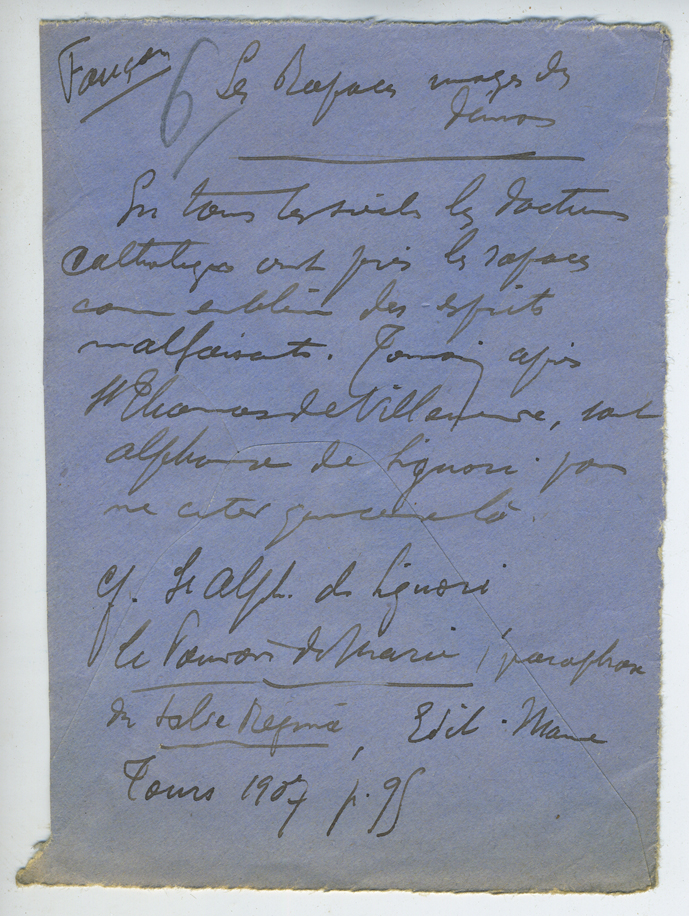 Faucon
6 Les Rapaces images des
démons
En tous les siècles les docteurs
catholiques ont pris les rapaces
comme emblème des esprits
malfaisants. Témoin après
St Thomas de Villeneuve, saint
Alphonse de Liguori pour
ne citer que ceux là.
cf. St Alph. de Liguori
le Pouvoir de Marie, paraphrase
du Salve Regina, Edit. Mame
Tours 1907 p. 95